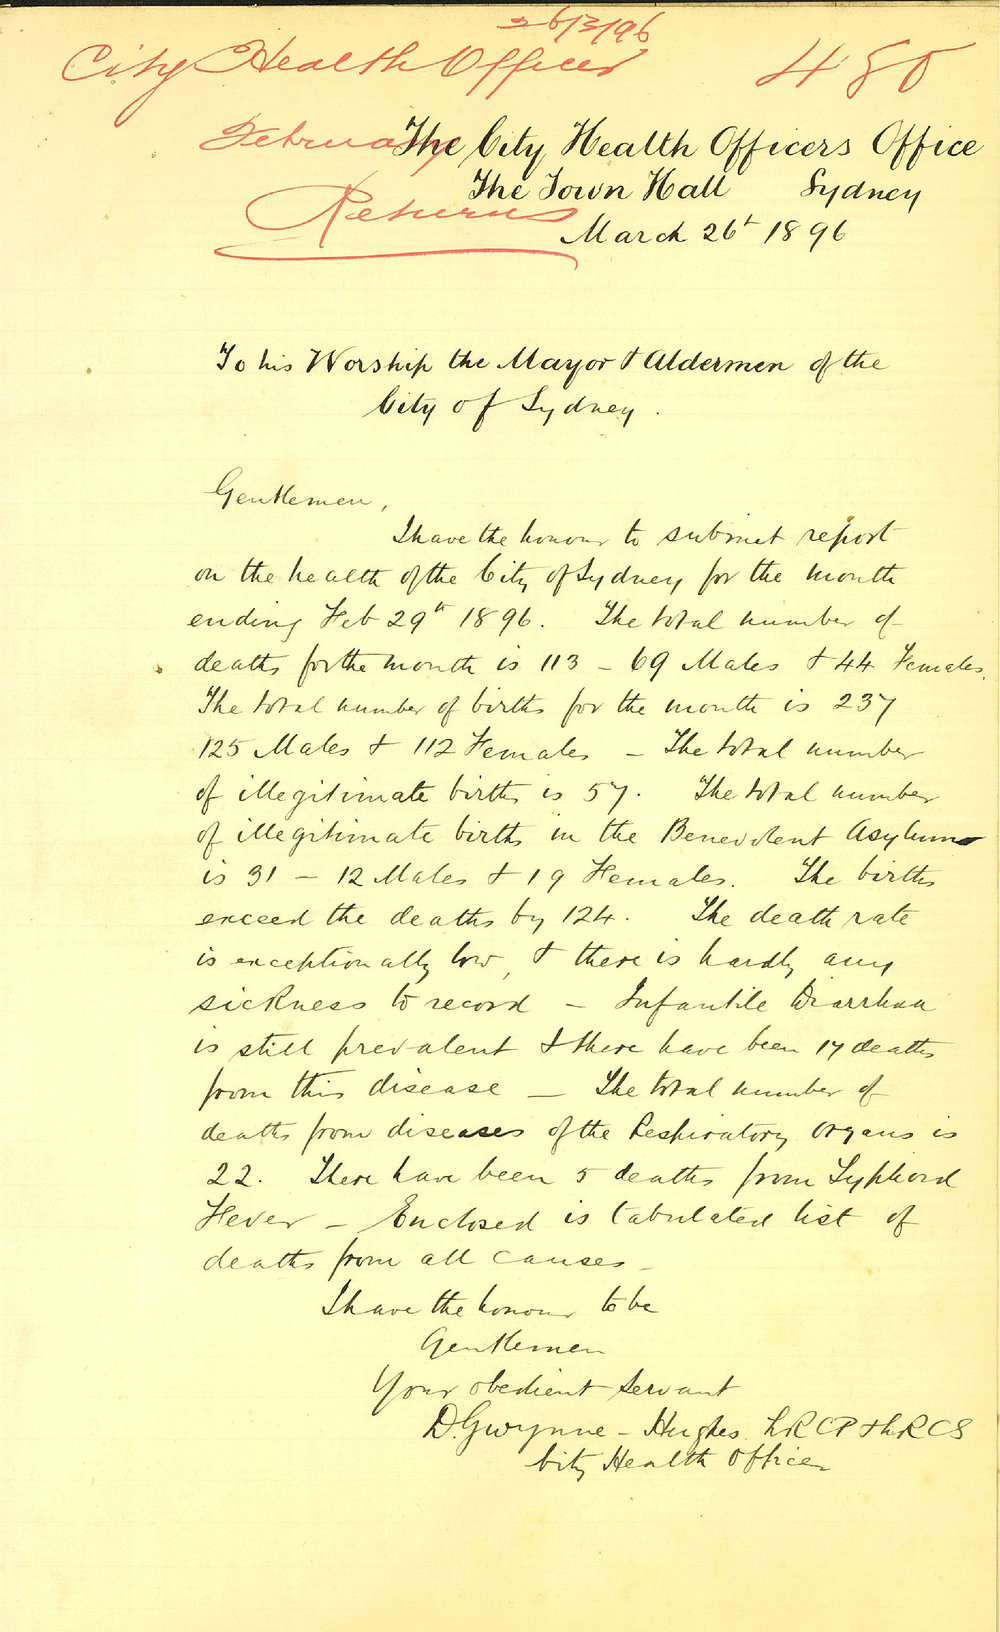 26/3/96
City Health Officer 480
February
Returns
The City Health Officers Office
The Town Hall Sydney
March 26th 1896
To his Worship the Mayor & Aldermen of the
City of Sydney.
Gentlemen,
I have the honour to submit report
on the health of the City of Sydney for the month
ending Feb 29th 1896. The total number of
deaths for the month is 113 – 69 Males & 44 Females.
The total number of births for the month is 237
125 Males & 112 Females – The total number
of illegitimate births is 57. The total number
of illegitimate births in the Benevolent Asylum
is 31 – 12 Males & 19 Females. The births
exceed the deaths by 124. The death rate
is exceptionally low, & there is hardly any
sickness to record – Infantile Diarrhœa
is still prevalent & there have been 17 deaths
from this disease – The total number of
deaths from diseases of the Respiratory Organs is
22. There have been 5 deaths from Typhoid
Fever – Enclosed is tabulated list of
deaths from all causes –
I have the honour to be
Gentlemen
Your obedient Servant
D. Gwynne-Hughes LRCP & LRCS
City Health Officer